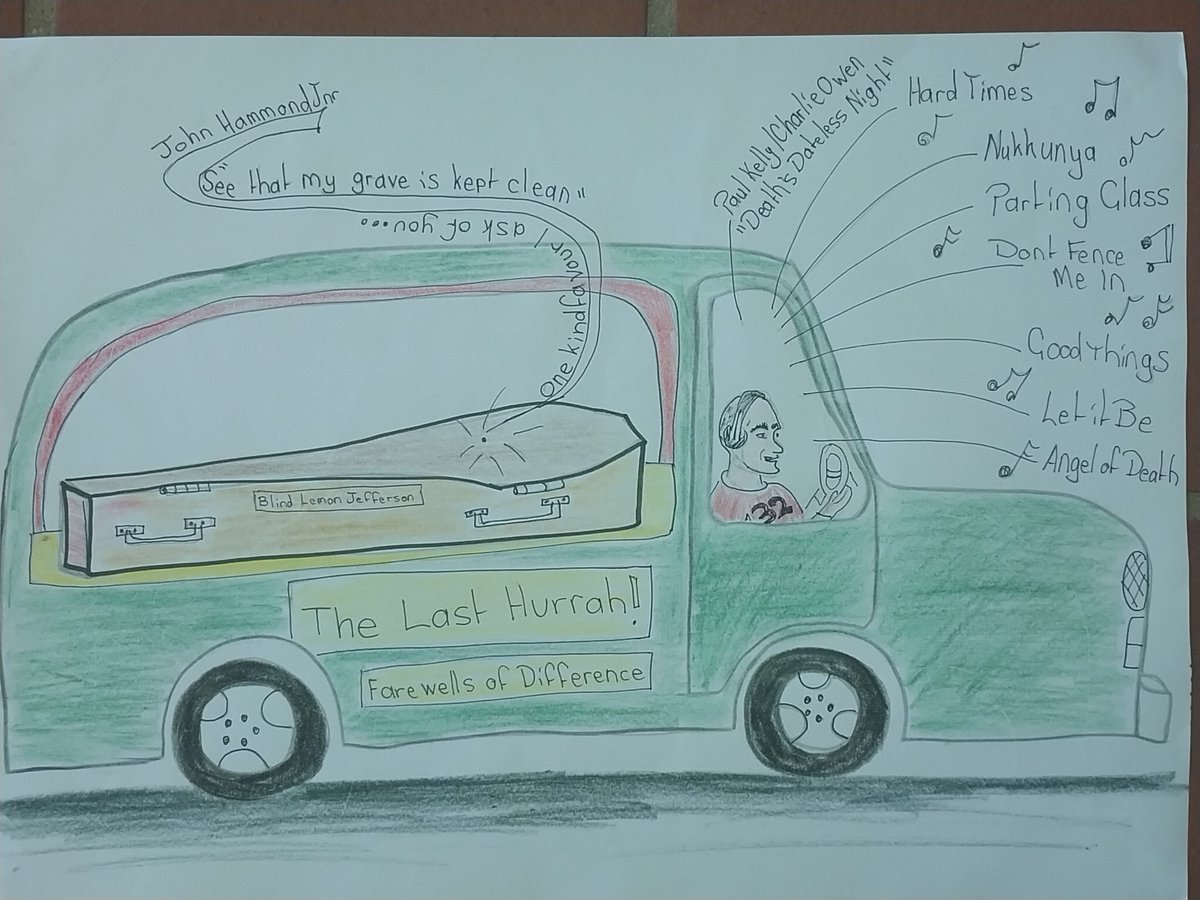 John Hammond Jnr
"See that my grave is kept clean"
One kind favour I ask of you...
Paul Kelly/Charlie Owen
"Death's Dateless Night"
Hard Times
Nukkunya
Parting Glass
Dont Fence
Me In
Good Things
Let it Be
Angel of Death
32
Blind Lemon Jefferson
The Last Hurrah!!
Farewells of Difference